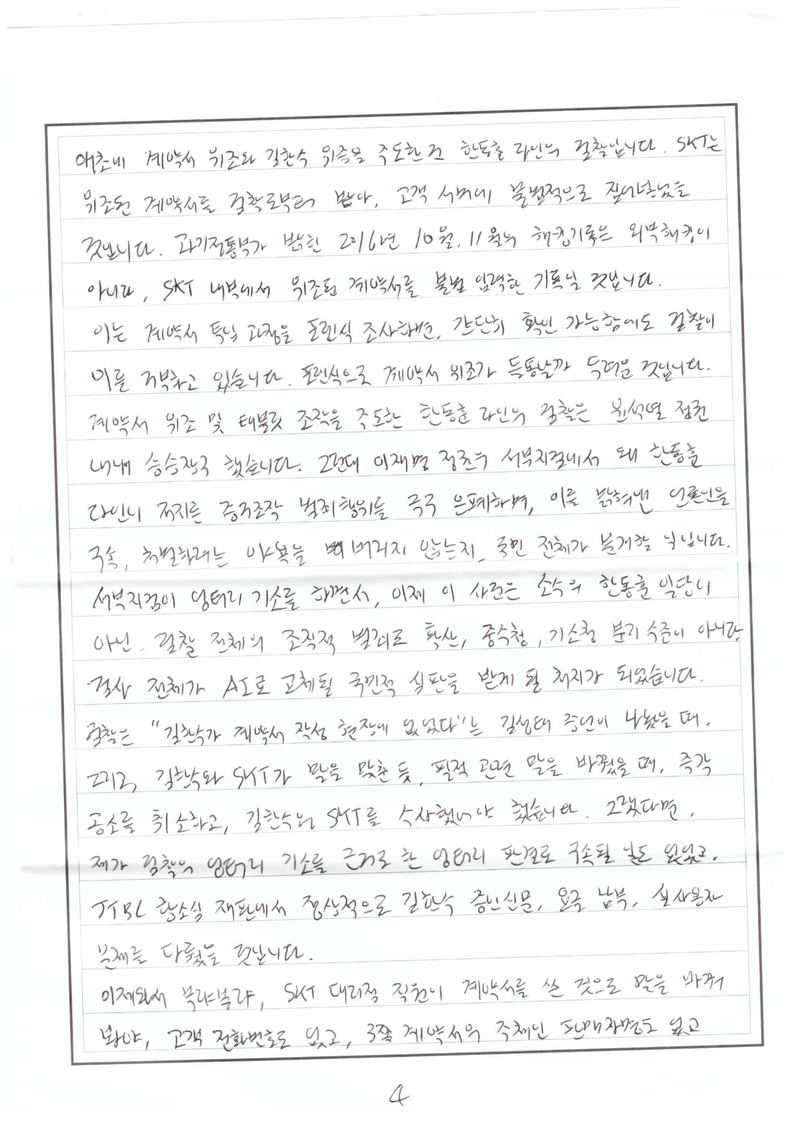 애초에 계약서 위조와 김한수 위증을 주도한 건 한동훈 라인의 검찰입니다. SKT는
위조된 계약서를 검찰로부터 받아, 고객 서버에 불법적으로 집어넣었을
것입니다. 과기정통부가 밝힌 2016년 10월, 11월의 해킹기록은 외부해킹이
아니라, SKT 내부에서 위조된 계약서를 불법 입력한 기록일 것입니다.
이는 계약서 투입 과정을 포렌식 조사하면, 간단히 확인 가능함에도 검찰이
이를 거부하고 있습니다. 포렌식으로 계약서 위조가 들통날까 두려운 것입니다.
계약서 위조 및 태블릿 조작을 주도한 한동훈 라인의 검찰은 윤석열 정권
내내 승승장구 했습니다. 그런데 이재명 정권의 서부지검에서 왜 한동훈
라인이 저지른 증거조작 범죄행위를 극구 은폐하며, 이를 밝혀낸 언론인을
구속, 처벌하려는 야욕을 버리지 않는지, 국민 전체가 분개할 일입니다.
서부지검이 엉터리 기소를 하면서, 이제 이 사건은 소수의 한동훈 일당이
아닌, 검찰 전체의 조직적 범죄로 확산, 중수청, 기소청 분리 수준이 아니라,
검사 전체가 AI로 교체될 국민적 심판을 받게 될 처지가 되었습니다.
검찰은 "김한수가 계약서 작성 현장에 없었다"는 김성태 증언이 나왔을 때,
그리고, 김한수와 SKT가 말을 맞춘 듯, 필적 관련 말을 바꿨을 때, 즉각
공소를 취소하고, 김한수와 SKT를 수사했어야 했습니다. 그랬다면,
제가 검찰의 엉터리 기소를 근거로 한 엉터리 판결로 구속될 일도 없었고,
JTBC 항소심 재판에서 정상적으로 김한수 증인신문, 요금 납부, 실사용자
문제를 다뤘을 것입니다.
이제와서 부랴부랴, SKT 대리점 직원이 계약서를 쓴 것으로 말을 바꿔
봐야, 고객 전화번호도 없고, 3쪽 계약서의 주체인 판매자명도 없고
4